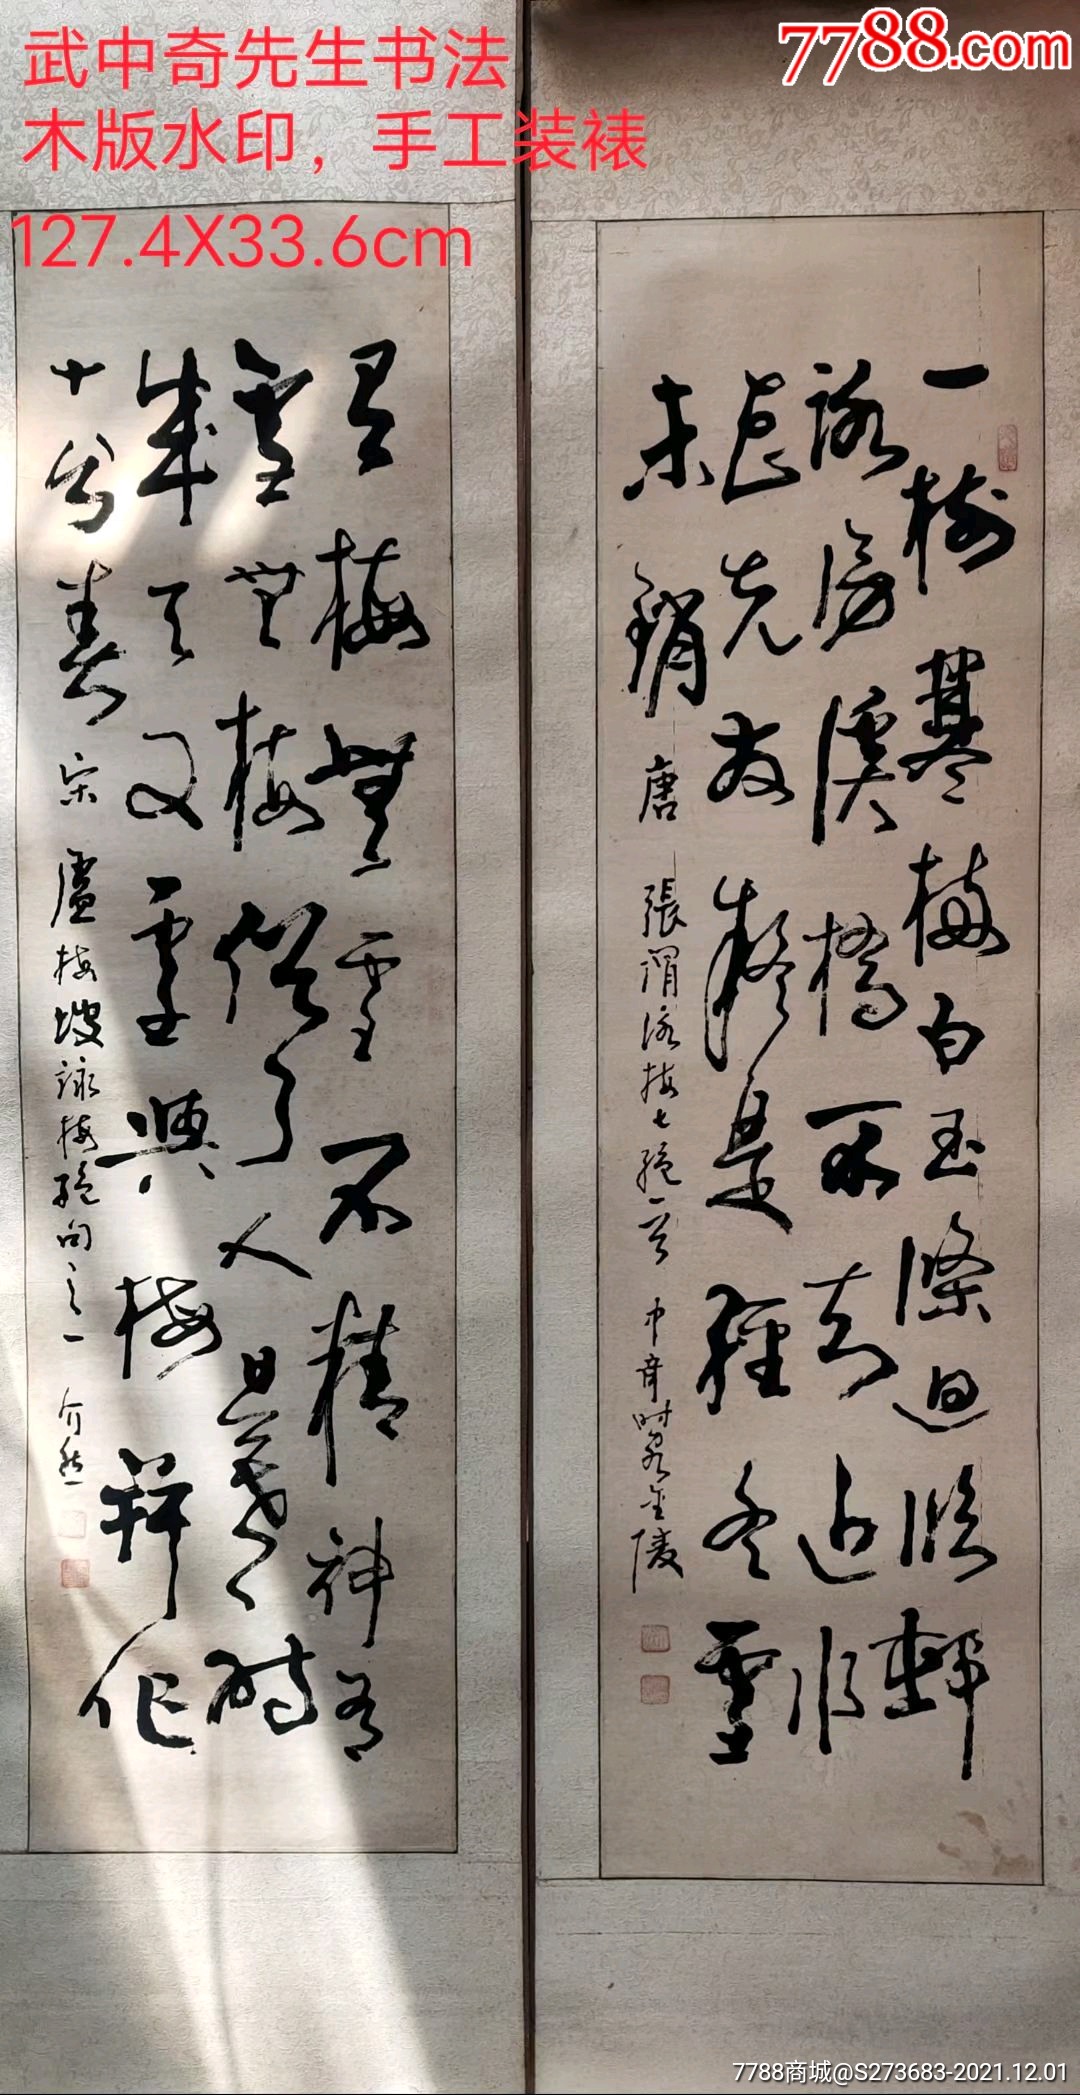 武中奇先生书法
木版水印，手工装裱
127.4X33.6cm
7788.com
一樹寒梅白玉條迥臨邨
路傍溪橋不知近水
花先發疑是經冬雪
未銷 唐 張謂詠梅七絕一首 中奇時客金陵
有梅無雪不精神有
雪無梅俗了人日暮詩
成天又雪與梅并作
十分春 宋 盧梅坡詠梅絕句之一
7788商城@S273683-2021.12.01